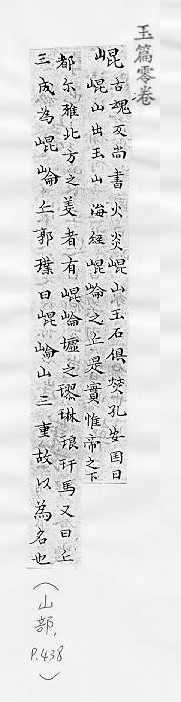 玉篇零卷
崐古魂反尚書火炎崐山玉石俱焚孔安国曰
崐山出玉山海經崐崘之丘是實惟帝之下
都尓雅北方之美者有崐崘墟之璆琳琅玕馬又曰丘
三成為崐崘丘郭璞曰崐崘山三重故以為名也
(山部, P.438)